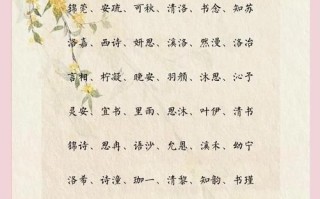 锦莞、安琉、可秋、清洛、书念、知苏
洛嘉、西诗、妍思、溪洛、熙漫、洛冶
言相、柠凝、晚安、羽颜、沐思、沁予
灵安、宜书、里雨、思沐、叶伊、清书
锦诗、思冉、语沙、允恩、溪禾、幼宁
洛希、诗潼、珈一、清黎、知韵、书瑾